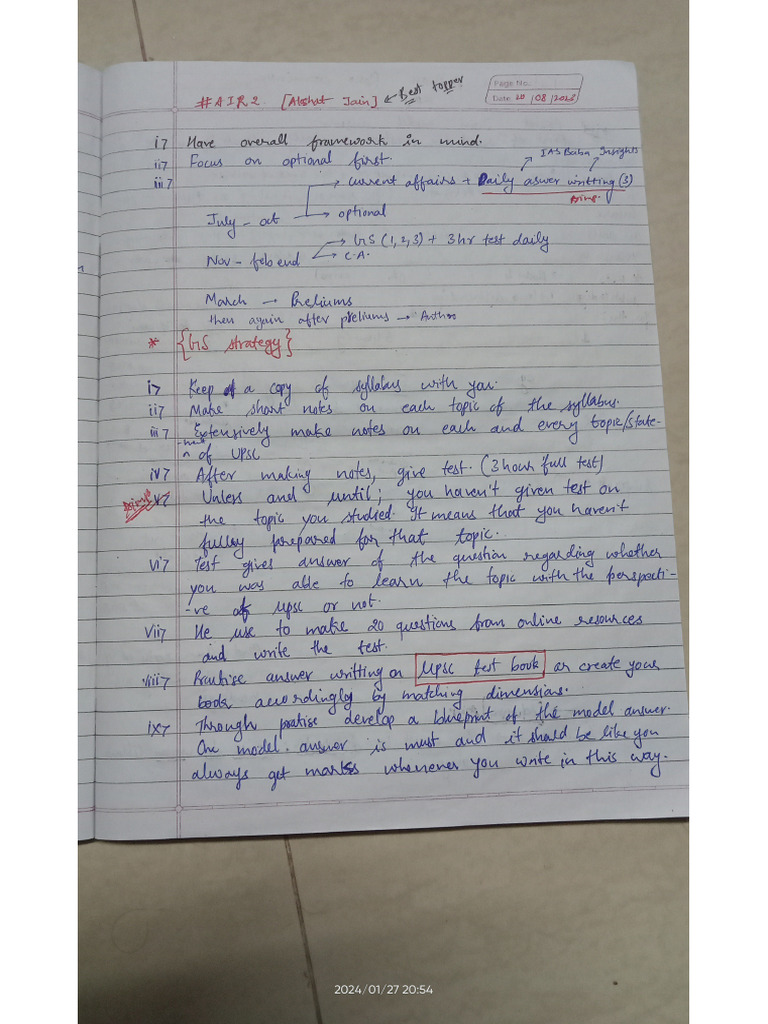 # AIR 2. [Akshat Jain] ← Best topper
Page No.
Date 20 /08/2023
i> Have overall framework in mind.
ii> Focus on optional first.
IAS Baba Insights
iii> → current affairs + Daily aswer writting (3)
July - oct → optional
→ GS (1,2,3) + 3hr test daily
Nov - feb end → C.A.
March → Preliums
then again after preliums →
* {GS strategy}
i> Keep a copy of syllabus with you.
ii> Make short notes on each topic of the syllabus.
iii> Extensively make notes on each and every topic/state-
-ment of UPSC
iv> After making notes, give test. (3 hour full test)
v> Unless and until; you haven't given test on
the topic you studied. It means that you haven't
fully prepared for that topic.
vi> Test gives answer of the question regarding whether
you was able to learn the topic with the perspecti-
-ve of UPSC or not.
vii> He use to make 20 questions from online resources
and write the test.
viii> Practise answer writting on UPSC test book or create your
book accordingly by matching dimensions.
ix> Through pratise develop a blueprint of the model answer.
One model answer is must and it should be like you
always get marks whenever you write in this way.
2024/01/27 20:54